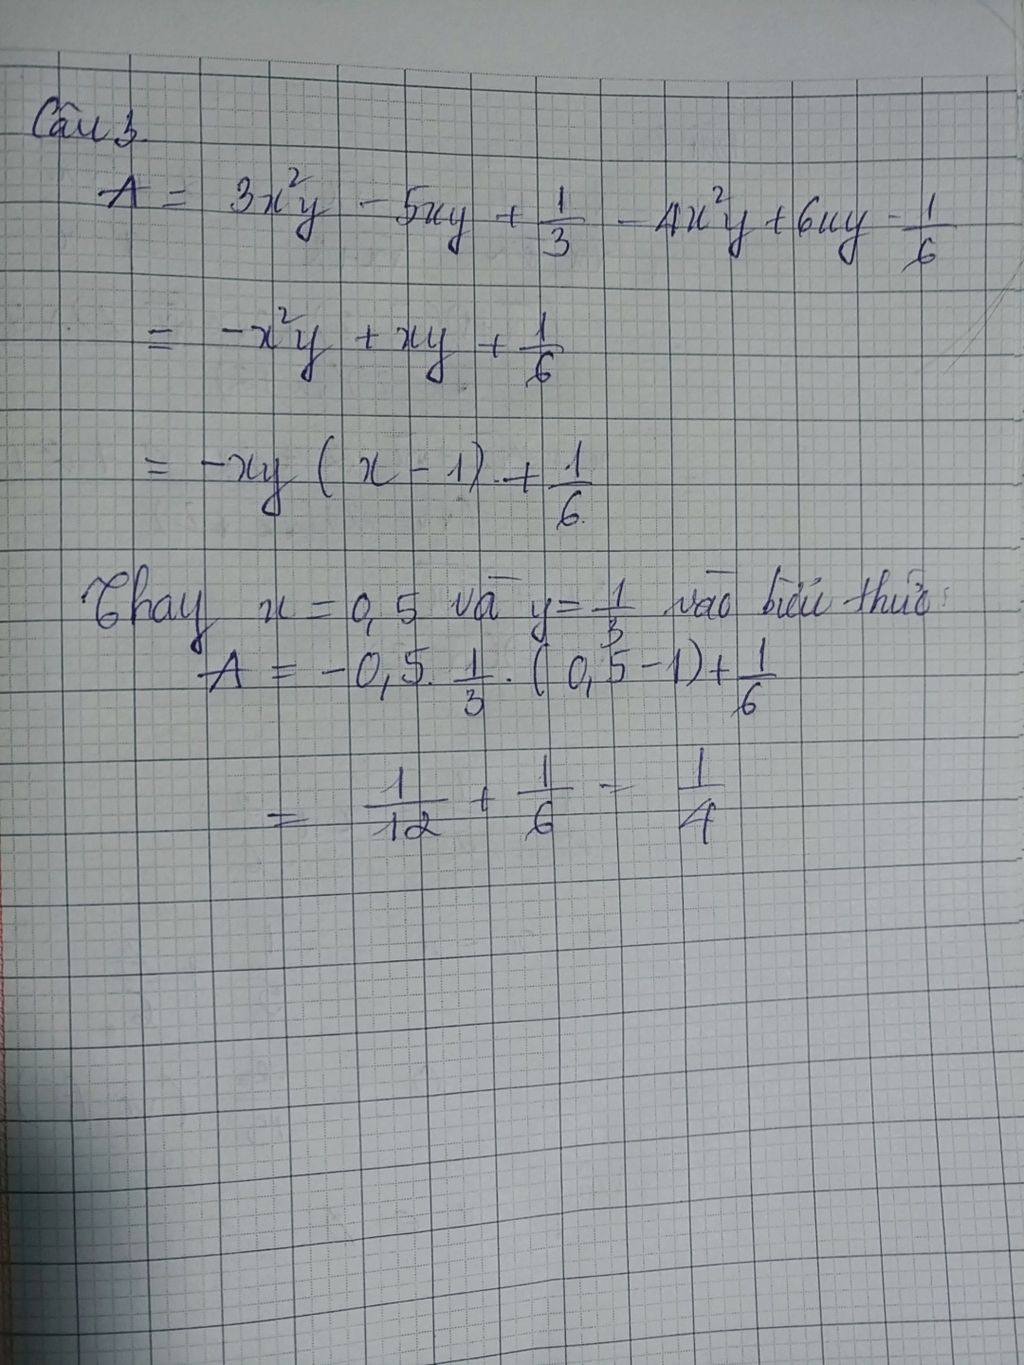 Câu 3
A = 3x²y - 5xy + 1/3 - 4x²y + 6xy - 1/6
= -x²y + xy + 1/6
= -xy (x - 1) + 1/6
Thay x = 0,5 và y = 1/3 vào biểu thức:
A = -0,5 . 1/3 . (0,5 - 1) + 1/6
= 1/12 + 1/6 = 1/4